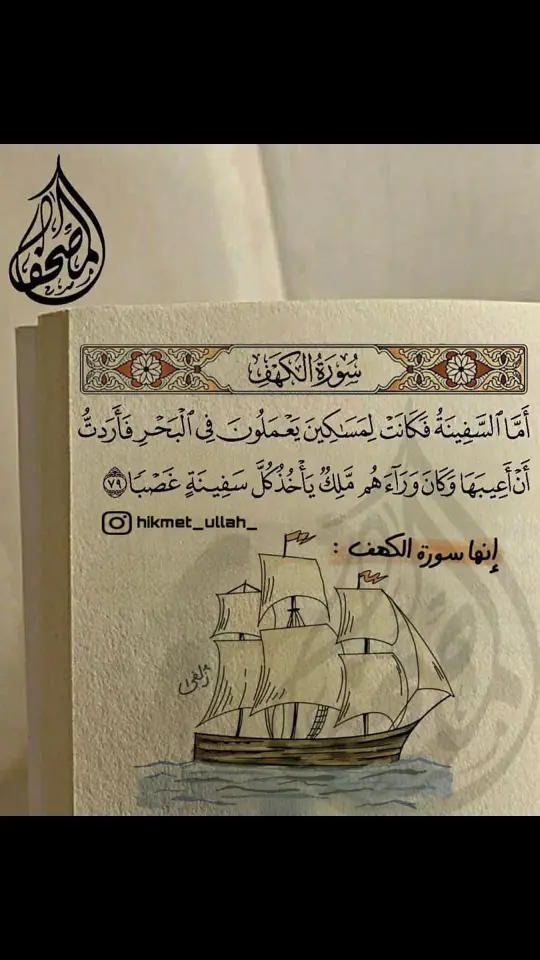 المصحف
سُورَةُ الكَهْفِ
أَمَّا ٱلسَّفِينَةُ فَكَانَتْ لِمَسَٰكِينَ يَعْمَلُونَ فِى ٱلْبَحْرِ فَأَرَدتُّ
أَنْ أَعِيبَهَا وَكَانَ وَرَآءَهُم مَّلِكٌ يَأْخُذُ كُلَّ سَفِينَةٍ غَصْبًا ٧٩
hikmet_ullah_
إنها سورة الكهف :